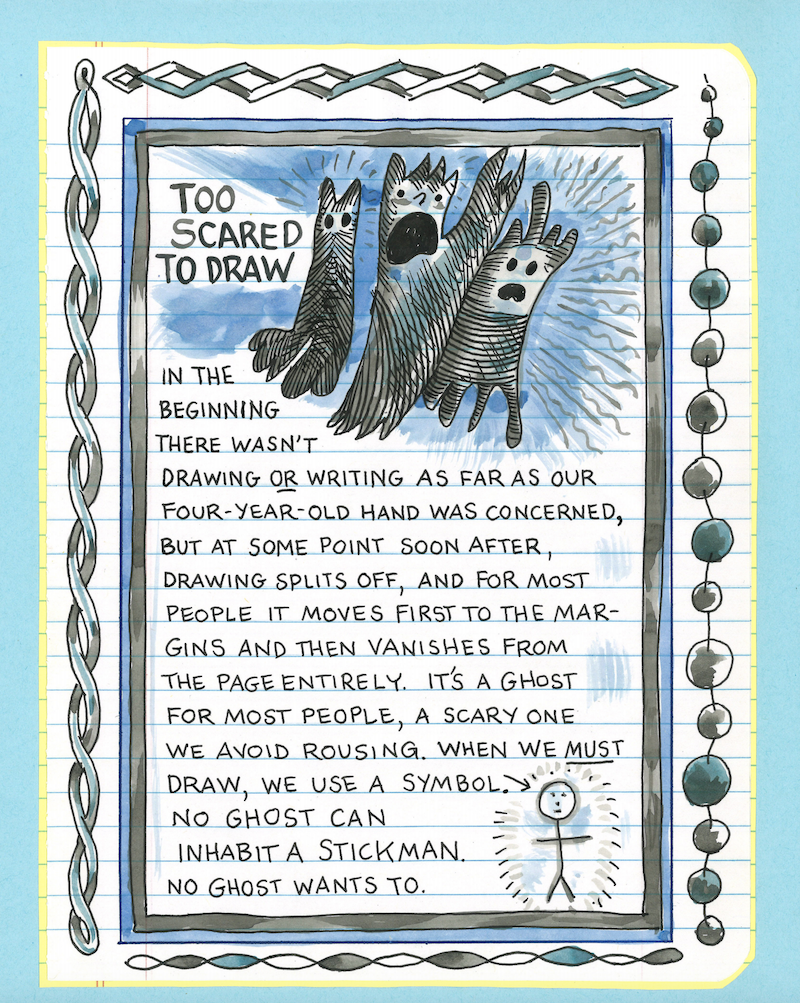 TOO
SCARED
TO DRAW
IN THE
BEGINNING
THERE WASN'T
DRAWING OR WRITING AS FAR AS OUR
FOUR-YEAR-OLD HAND WAS CONCERNED,
BUT AT SOME POINT SOON AFTER,
DRAWING SPLITS OFF, AND FOR MOST
PEOPLE IT MOVES FIRST TO THE MAR-
GINS AND THEN VANISHES FROM
THE PAGE ENTIRELY. IT'S A GHOST
FOR MOST PEOPLE, A SCARY ONE
WE AVOID ROUSING. WHEN WE MUST
DRAW, WE USE A SYMBOL.
NO GHOST CAN
INHABIT A STICKMAN.
NO GHOST WANTS TO.